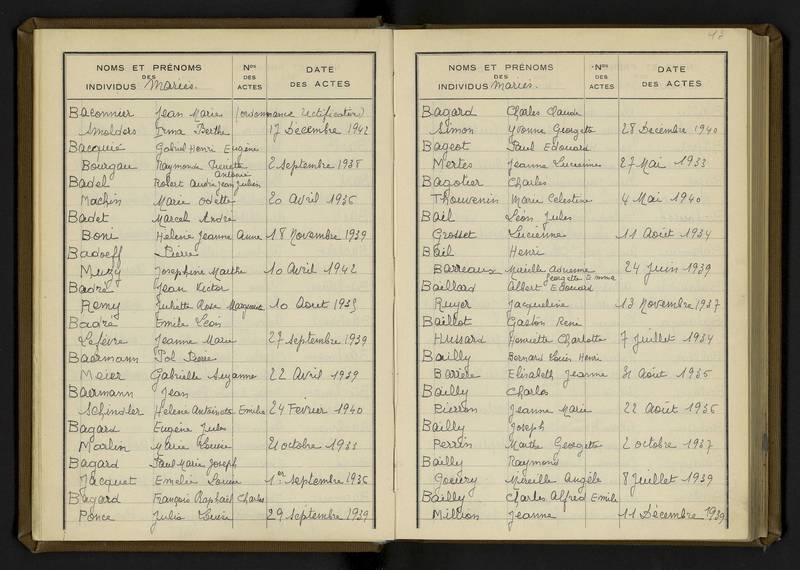 NOMS ET PRÉNOMS
DES
INDIVIDUS Mariés.
Nos
DES
ACTES
DATE
DES ACTES
Baconnier Jean Marie (ordonnance rectificative)
Smolders Irma Berthe 17 Décembre 1942
Bacquis Gabriel Henri Eugène
Bourgau Raymonde 2 septembre 1938
Antoine
Badel Robert André Jean Julien
Machin Marie Odette 20 avril 1936
Badet Marcel André
Boni Helene Jeanne Anne 18 Novembre 1939
Badoeff Pierre
Muzy Josephine Marthe 10 Avril 1942
Badré Jean Victor
Remy Juliette Rose Marguerite 10 Aout 1935
Badré Emile Léon
Lefèvre Jeanne Marie 27 septembre 1939
Baermann Pol Pierre
Meier Gabrielle Suzanne 22 Avril 1939
Baermann Jean
Schindler Helene Antoinette Emilie 24 Fevrier 1940
Bagard Eugène Jules
Marlin Marie Louise octobre 1933
Bagard Paul Marie Joseph
Jacquet Emelie Louise 1er septembre 1936
Bagard François Raphaël Charles
Ponce Julia Louise 29 septembre 1939
NOMS ET PRÉNOMS
DES
INDIVIDUS Mariés.
Nos
DES
ACTES
DATE
DES ACTES
Bagard Charles Claude
Simon Yvonne Georgette 28 Decembre 1940
Bageot Paul Edouard
Mertes Jeanne Lucienne 27 Mai 1933
Bagotier Charles
Thouvenin Marie Celestine 4 Mai 1940
Bail Léon Jules
Grosset Lucienne 11 Août 1934
Bail Henri
Barreaux Mireille Adrienne 24 Juin 1939
Georgette Emma
Baillard Albert Edouard
Ruyer Jacqueline 13 Novembre 1937
Baillot Gaston René
Hussard Henriette Charlotte 7 Juillet 1934
Bailly Bernard Louis Henri
Barrière Elisabeth Jeanne 31 Août 1935
Bailly Charles
Pierron Jeanne Marie 22 Août 1936
Bailly Joseph
Perrin Marthe Georgette 2 octobre 1937
Bailly Raymond
Goeury Mireille Angèle 8 Juillet 1939
Bailly Charles Alfred Emile
Million Jeanne 11 Décembre 1939